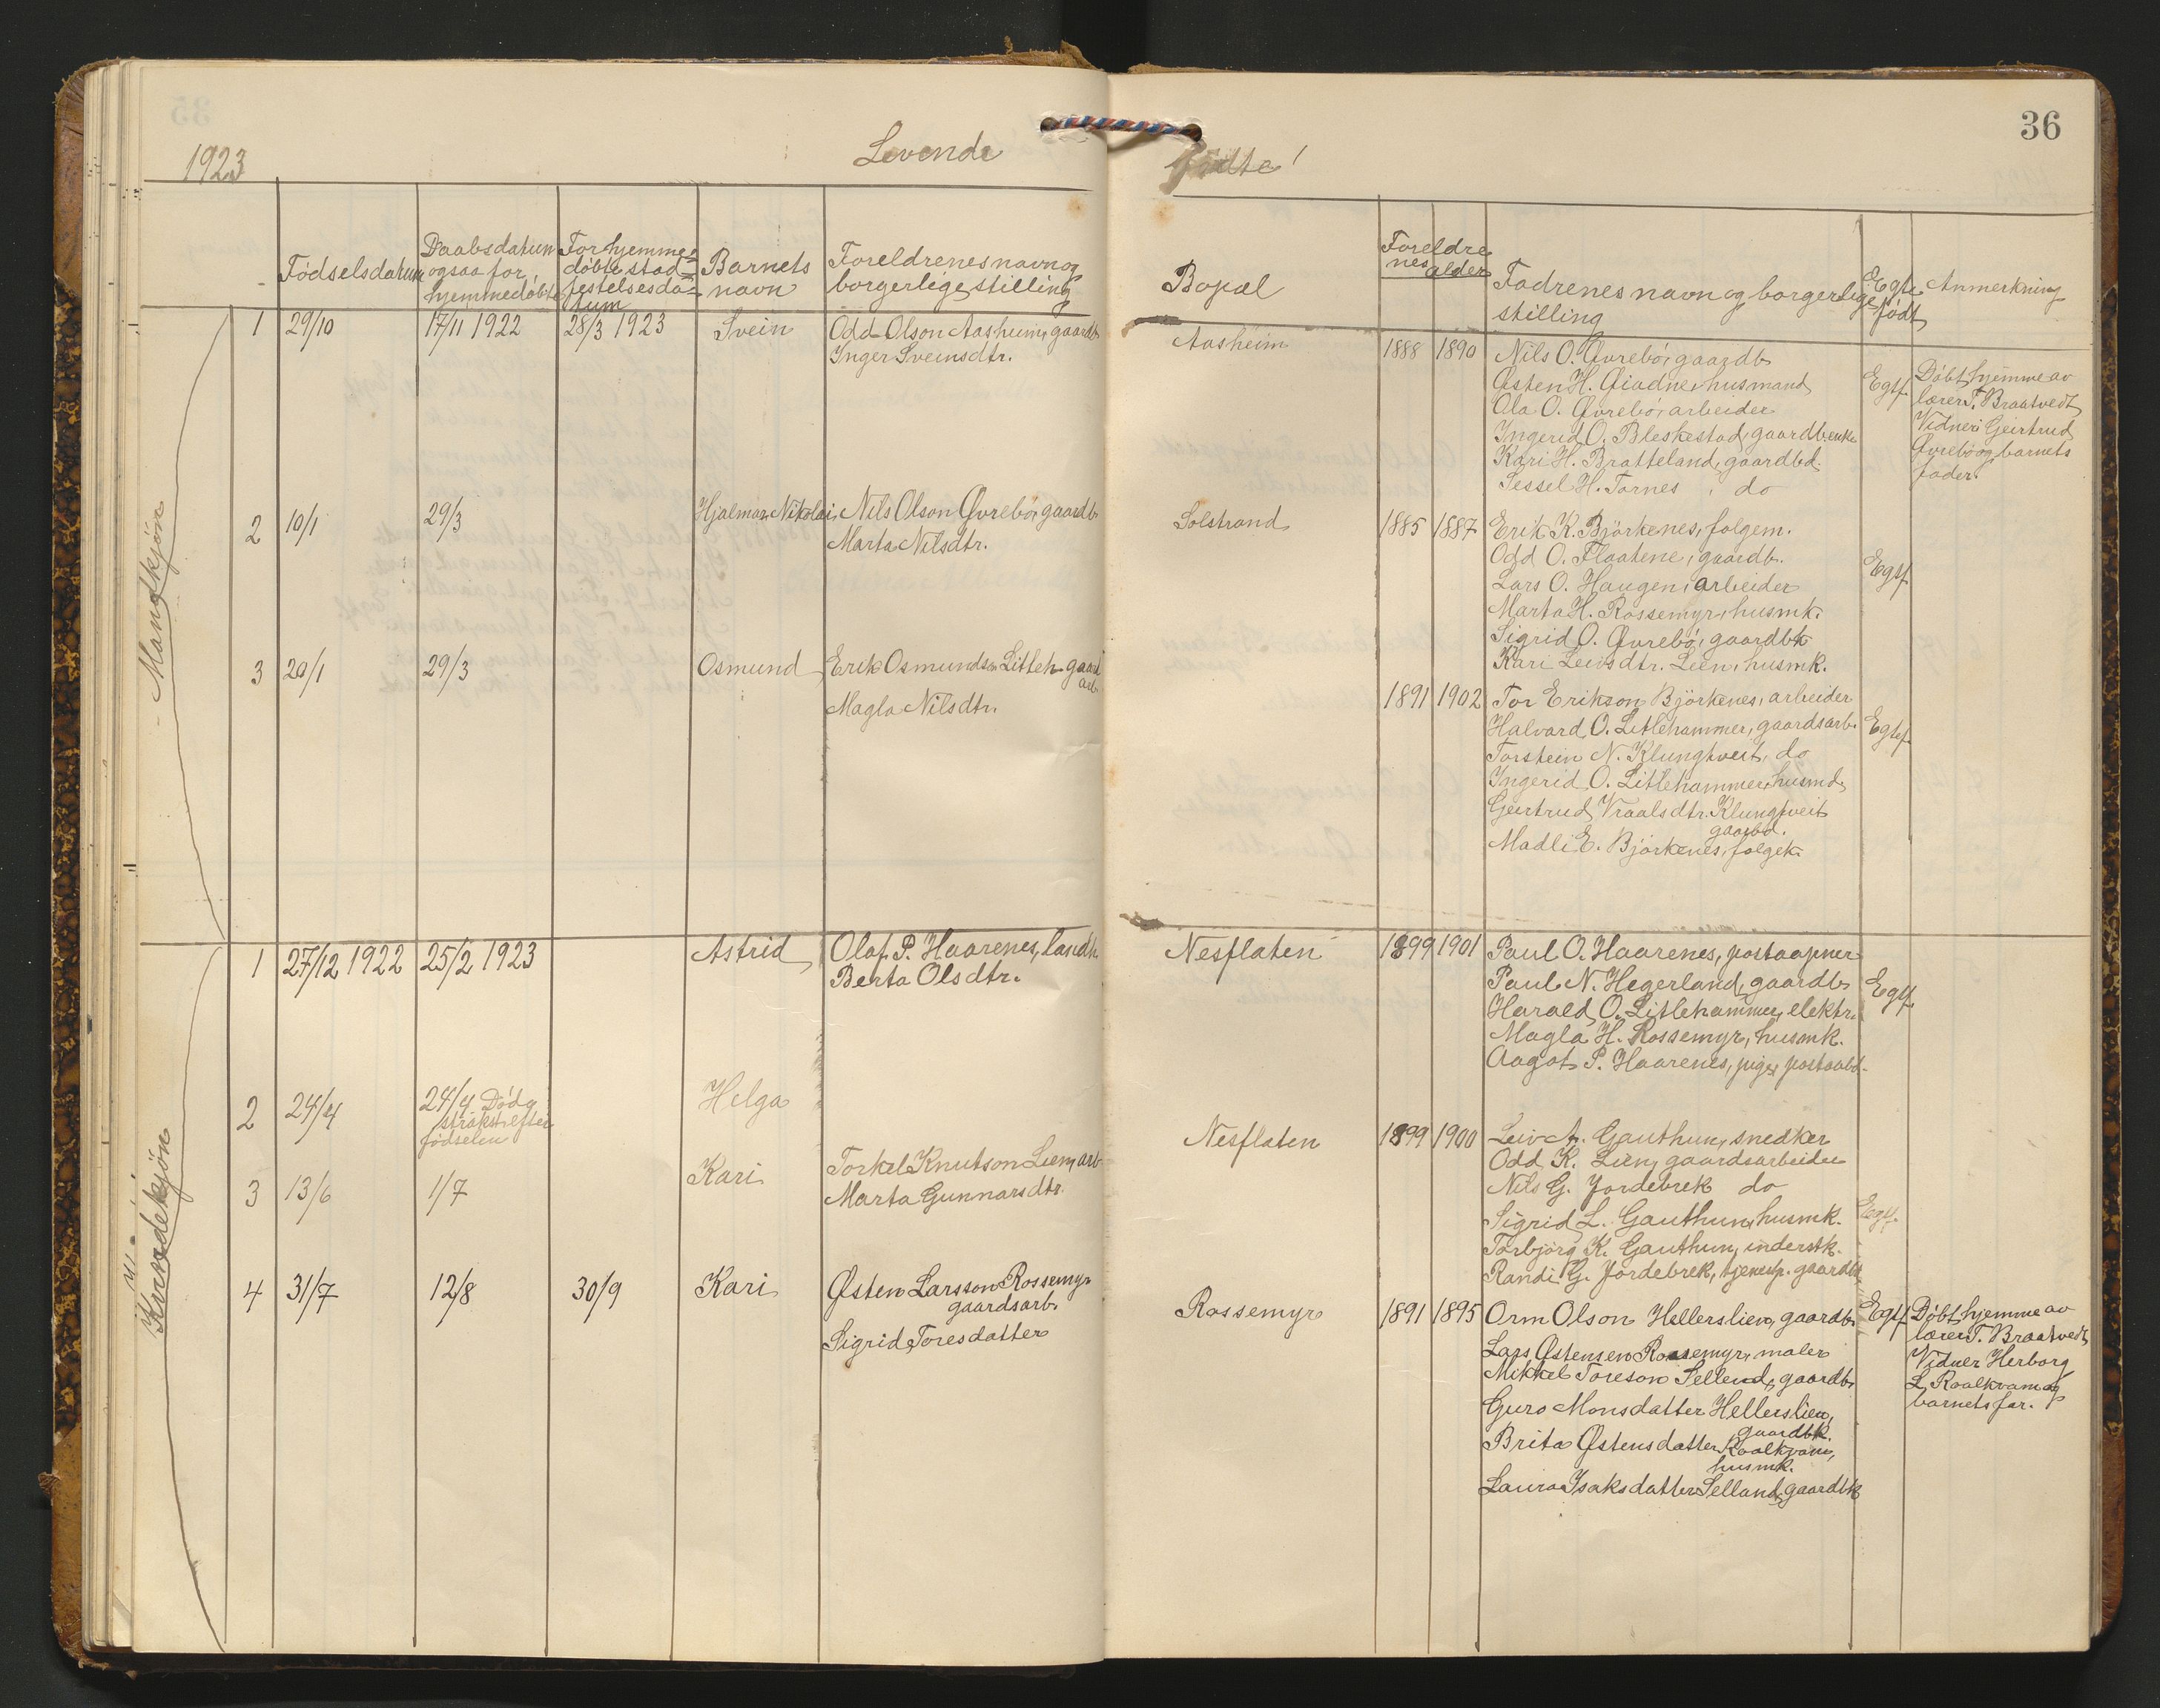 36
1923
Levende
Fødte!
Födselsdatum
Daabsdatum
ogsaa for
hjemmedøbte
For hjemme=
døbte stad=
festelsesda=
tum
Barnets
navn
Foreldrenes navn og
borgerlige stilling
Bopæl
Foreldre
nes alder
Fadrenes navn og borgerlige
stilling
Egte
født
Anmerkning
Mandkjøn
1 29/10 17/11 1922 28/3 1923 Svein Odd Olson Aasheim, gaardb
Inger Sveinsdtr.
Aasheim 1888 1890 Nils O. Øvrebø, gaardb
Østen H. Øiadne, husmand
Ola O. Øvrebø, arbeider
Ingerid O. Bleskestad, gaardb.enke
Kari H. Bratteland, gaardbd.
Sessel H. Tornes, do
Egtf.
Døbt hjemme av
lærer T. Braatvedt
Vidner: Geirtrud
Øvrebø og barnets
fader.
2 10/1 29/3 Hjalmar Nikolai Nils Olson Øvrebø, gaardb
Marta Nilsdtr.
Solstrand 1885 1887 Erik K. Björkenes, folgem.
Odd O. Flaatene, gaardb.
Lars O. Haugen, arbeider
Marta H. Rossemyr, husmk.
Sigrid O. Øvrebø, gaardbk
Kari Leivsdtr. Lien, husmk.
Egtf.
3 20/1 29/3 Osmund Erik Osmundson Litleh. gaard
arb.
Magla Nilsdtr.
1891 1902 Tor Erikson Björkenes, arbeider
Halvard O. Litlehammer, gaardsarb.
Torstein N. Klungtveit, do
Ingerid O. Litlehammer, husmd.
Geirtrud Vraalsdtr. Klungtveit
gaarbd.
Madli E. Björkenes, folgek.
Egtef.
Kvindekjøn
1 27/12 1922 25/2 1923 Astrid Olaf P. Haarenes, landh.
Berta Olsdtr.
Nesflaten 1899 1901 Paul O. Haarenes, postaapner
Paul N. Hegerland, gaardb
Harald O. Litlehammer, elektr.
Magla H. Rossemyr, husmk.
Aagot P. Haarenes, pige, postaabd.
Egtf.
2 24/4 24/4 Døde
strakst efter
födselen
Helga
3 13/6 1/7 Kari Torkel Knutson Lien, arb
Marta Gunnarsdtr.
Nesflaten 1899 1900 Leiv A. Gauthun, snedker
Odd K. Lien, gaardsarbeider
Nils G. Jordebrek do
Sigrid L. Gauthun, husmk.
Torbjörg K. Gauthun, inderstk.
Randi G. Jordebrek, tjenestp. gaardbd
Egtf.
4 31/7 12/8 30/9 Kari Østen Larsson Rossemyr
gaardsarb.
Sigrid Toresdatter
Rossemyr 1891 1895 Orm Olson Hellerslien, gaardb.
Lars Østensen Rossemyr, maler
Mikkel Toreson Selland, gaardb.
Guro Monsdatter Hellerslien,
gaardbk.
Brita Østensdatter Roalkvam,
husmk.
Laura Isaksdatter Selland, gaardbk
Egtf.
Døbt hjemme av
lærer T. Braatvedt,
Vidner Herborg
L. Roalkvam og
barnets far.